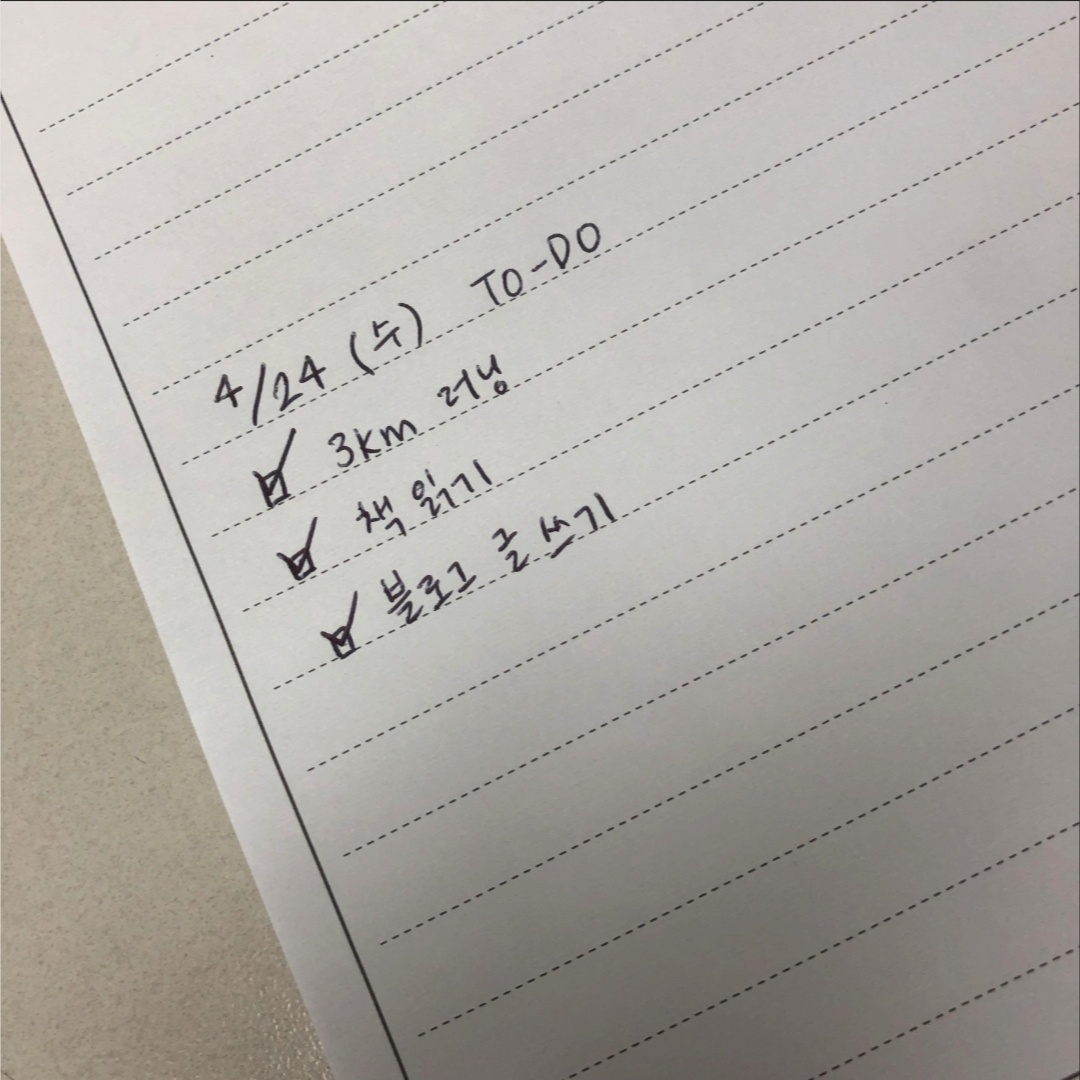 4/24 (수) TO-DO
☑ 3km 러닝
☑ 책 읽기
☑ 블로그 글 쓰기